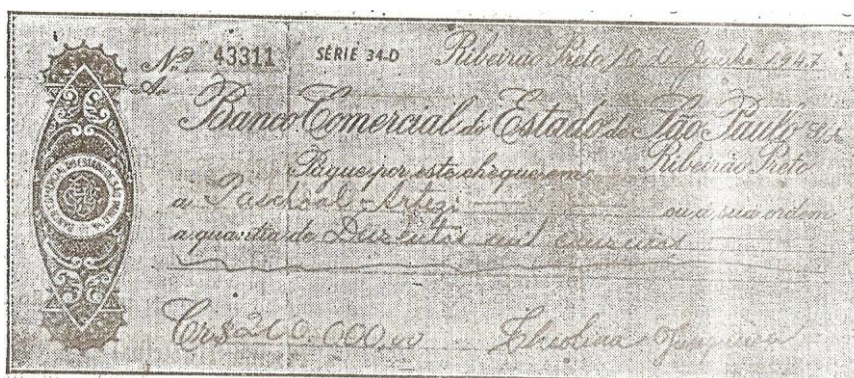 Nº 43311 SÉRIE 34-D Ribeirão Preto 10 de Junho 1947
Ao
Banco Comercial do Estado de São Paulo
Pague por este cheque em Ribeirão Preto
a Paschoal ou á sua ordem
a quantia de Duzentos mil cruzeiros
Cr$ 200.000,00